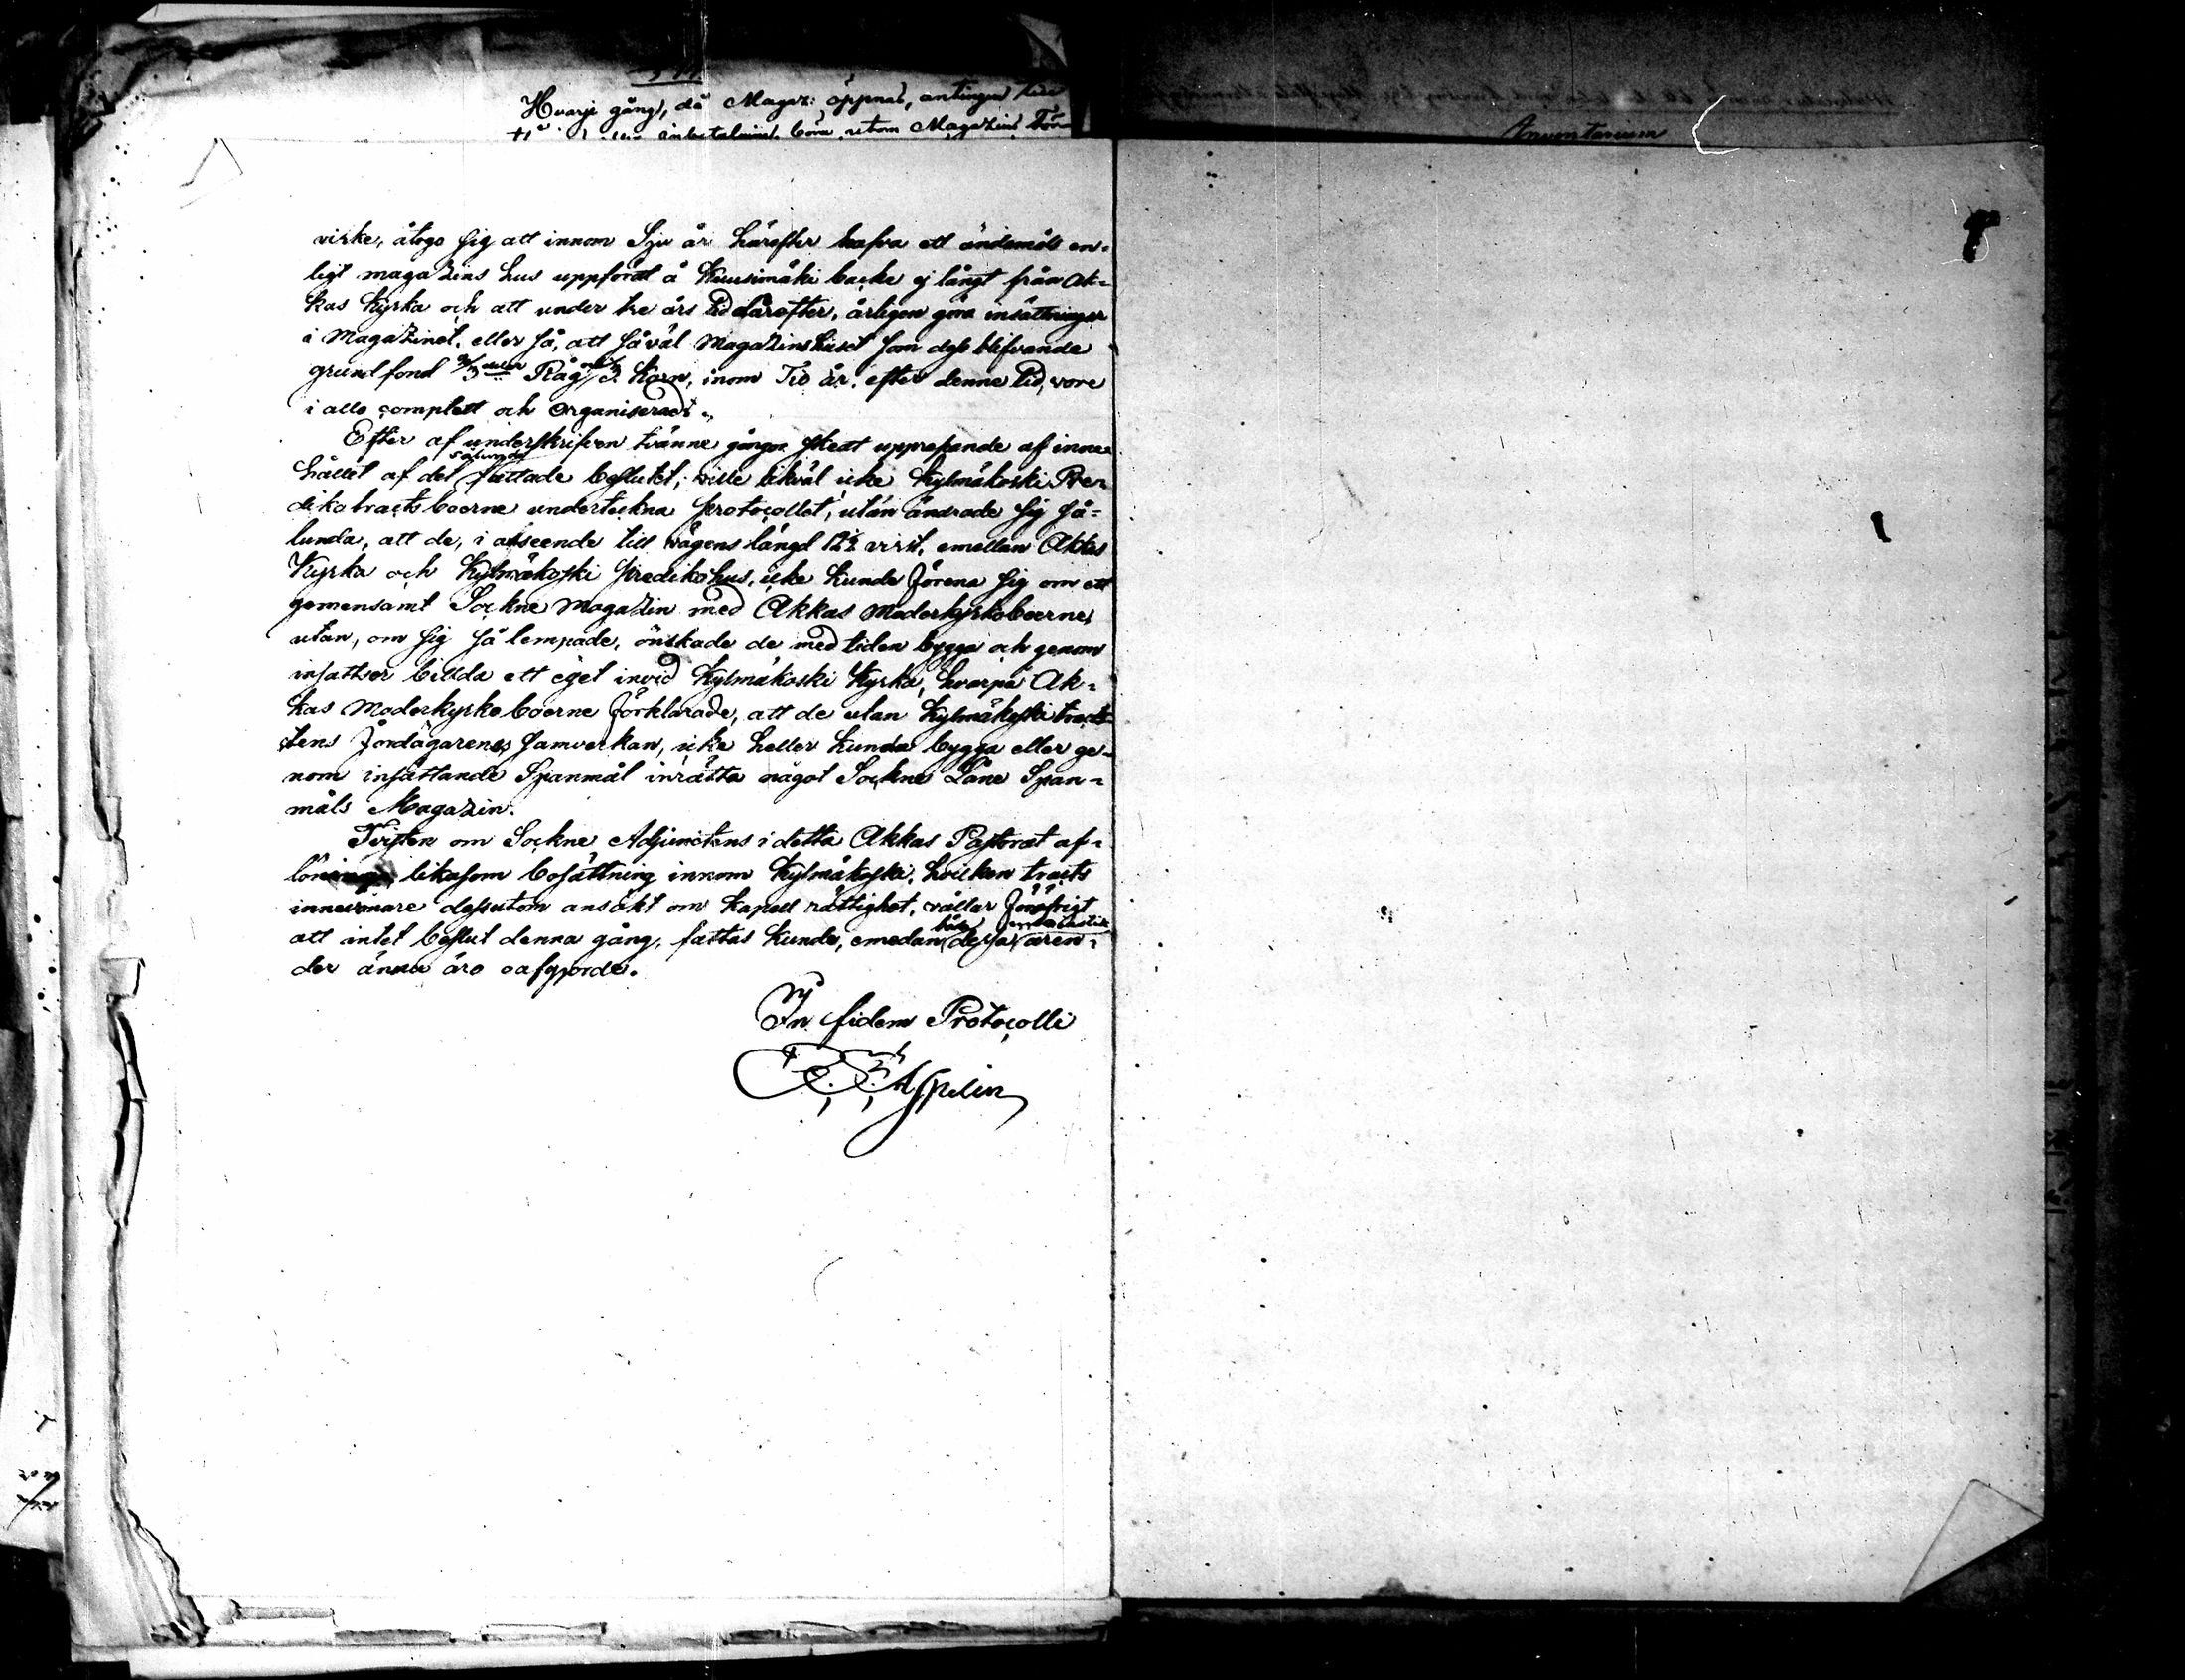 Hvarje gång, då Magaz: öppnas, antingen
inbetalning, böra utom Magazins
Inventarium
virke, åtogo sig att innom Sju år härefter hafva ett ändemåls en-
ligt magazins hus uppfördt å Kuusimäki backe ej långt från Ak-
kas Kyrka och att under tre års tid därefter, årligen göra insättningar
i Magazinet, eller så, att såväl Magazinshuset som dess blifvande
grundfond Råg Korn, inom Tio år, efter denne tid, vore
i allo complett och Organiseradt.
Efter af underskrifven tvänne gånger skedt upprepande af inne-
hållet af det sålunda fattade beslutet, ville likväl icke Kylmäkoski Pre-
dikotracts boerne underteckna protocollet, utan ändrade sig så-
lunda, att de, i afseende till vägens längd 12½ virst, emellan Akkas
Kyrka och Kylmäkoski predikohus, icke kunde förena sig om ett
gemensamt Sockne Magazin med Akkas Moderkyrkoboerne,
utan, om sig så lempade, önskade de med tiden bygga och genom
insattser billda ett eget invid Kylmäkoski Kyrka, hvarpå Ak-
kas Moderkyrko boerne förklarade, att de utan Kylmäkoski tract-
tens Jordägarenes samverkan, icke heller kunde bygga eller ge-
nom insättande Spanmål inrätta något Sockne Låne Span-
måls Magazin.
Tvisten om Sockne Adjunctens i detta Akkas Pastorat af-
löning likasom bosättning innom Kylmäkoski, hvilken tracts
innevånare dessutom ansökt om Kapell rättighet, vållar föröfrigt
att intet beslut denna gång, fattas kunde, emedan både dessa ären-
der ännu äro oafgjorde.
In fidem Protocolli
Aspelin